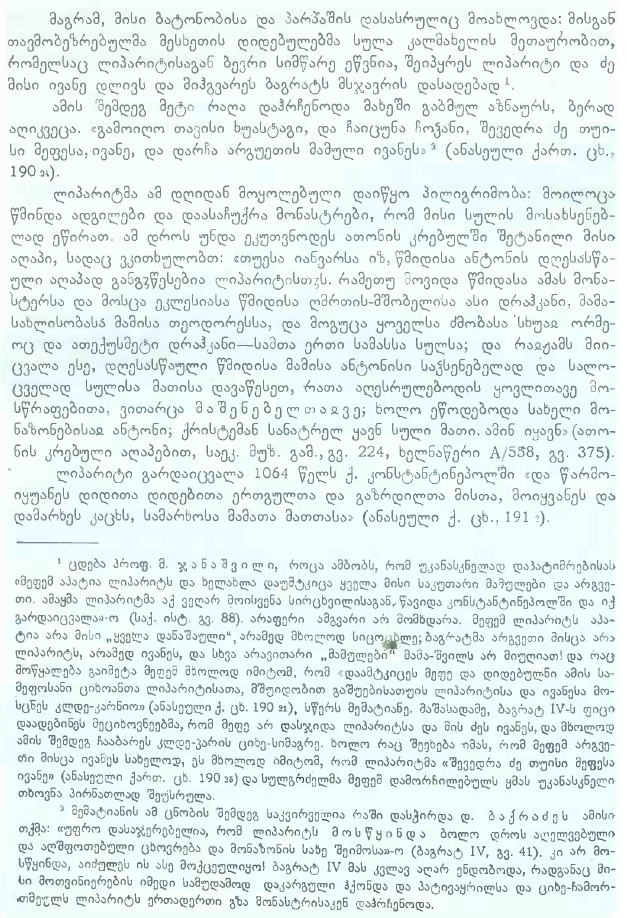 მაგრამ, მისი ბატონობისა და პარპაშის დასასრულიც მოახლოვდა: მისგან
თავმობეზრებულმა მესხეთის დიდებულებმა სულა კალმახელის მეთაურობით,
რომელსაც ლიპარიტისაგან ბევრი სიმწარე ეწვნია, შეიპყრეს ლიპარიტი და ძე
მისი ივანე დლივს და მიჰგვარეს ბაგრატს მსჯავრის დასადებად ¹.
ამის შემდეგ მეტი რაღა დაჰრჩენოდა მახეში გაბმულ აზნაურს, ბერად
აღიკვეცა. «გამოიღო თავისი ხუასტაგი, და ჩაიცუნა ჩოჴანი, შევედრა ძე თუი-
სი მეფესა, ივანე, და დარჩა არგუეთის მამული ივანეს» ² (ანასეული ქართ. ცხ.,
190 ₂₄).
ლიპარიტმა ამ დღიდან მოყოლებული დაიწყო პილიგრიმობა: მოილოცა
წმინდა ადგილები და დაასაჩუქრა მონასტრები, რომ მისი სულის მოსახსენებ-
ლად ეწირათ. ამ დროს უნდა ეკუთვნოდეს ათონის კრებულში შეტანილი მისი
აღაპი, სადაც ვკითხულობთ: «თუესა იანვარსა იზ, წმიდისა ანტონის დღესასწა-
ული აღაპად განგვწესებია ლიპარიტისთჳს. რამეთუ მოვიდა წმიდასა ამას მონა-
სტერსა და მოსცა ეკლესიასა წმიდისა ღმრთის-მშობელისა ასი დრაჰკანი, მამა-
სახლისობასა მამისა თეოდორესსა, და მოგუცა ყოველსა ძმობასა სხუაჲ ორმე-
ოც და ათექუსმეტი დრაჰკანი—სამთა ერთი სამასსა სულსა; და რაჟამს მიი-
ცვალა ესე, დღესასწაული წმიდისა მამისა ანტონისი საჴსენებელად და სალო-
ცველად სულისა მათისა დავაწესეთ, რათა აღესრულებოდის ყოვლითავე მო-
სწრაფებითა, ვითარცა მაშენებელთაჲვე; ხოლო ეწოდებოდა სახელი მო-
ნაზონებისაჲ ანტონი; ქრისტემან სანატრელ ყავნ სული მათი. ამინ იყავნ» (ათო-
ნის კრებული აღაპებით, საეკ. მუზ. გამ., გვ. 224, ხელნაწერი A/558, გვ. 375).
ლიპარიტი გარდაიცვალა 1064 წელს ქ. კონსტანტინეპოლში «და წარმო-
იყუანეს დიდითა დიდებითა ერთგულთა და გაზრდილთა მისთა, მოიყვანეს და
დამარხეს კაცხს, სამარხოსა მამათა მათთასა» (ანასეული ქ. ცხ., 191 ₂).
¹ ცდება პროფ. მ. ჯანაშვილი, როცა ამბობს, რომ უკანასკნელად დაპატიმრებისას
«მეფემ აპატია ლიპარიტს და ხელახლა დაუმტკიცა ყველა მისი საკუთარი მამულები და არგვე-
თი. ამაყმა ლიპარიტმა აქ ვეღარ მოისვენა სირცხვილისაგან, წავიდა კონსტანტინეპოლში და იქ
გარდაიცვალა»-ო (საქ. ისტ. გვ. 88). არაფერი ამგვარი არ მომხდარა. მეფემ ლიპარიტს აპა-
ტია არა მისი „ყველა დანაშაული“, არამედ მხოლოდ სიცოცხლე; ბაგრატმა არგვეთი მისცა არა
ლიპარიტს, არამედ ივანეს, და სხვა არავითარი „მამულები“ მამა-შვილს არ მიუღიათ! და რაც
მოწყალება გაიმეტა მეფემ მხოლოდ იმიტომ, რომ «დაამტკიცეს მეფე და დიდებულნი ამის სა-
მეფოსანი ციხოანთა ლიპარიტისათა, მშუიდობით გაშუებისათუის ლიპარიტისა და ივანესა მო-
სცნეს კლდე-კარნიო» (ანასეული ქ. ცხ. 190 ₂₁), სწერს მემატიანე. მაშასადამე, ბაგრატ IV-ს ფიცი
დაადებინეს მეციხოვნეებმა, რომ მეფე არ დასჯიდა ლიპარიტსა და მის ძეს ივანეს, და მხოლოდ
ამის შემდეგ ჩააბარეს კლდე-კარის ციხე-სიმაგრე. ხოლო რაც შეეხება იმას, რომ მეფემ არგვე-
თი მისცა ივანეს სახელოდ, ეს მხოლოდ იმიტომ, რომ ლიპარიტმა «შევედრა ძე თუისი მეფესა
ივანე» (ანასეული ქართ. ცხ. 190 ₂₆) და სულგრძელმა მეფემ დამორჩილებულს ყმას უკანასკნელი
თხოვნა პირნათლად შეუსრულა.
² მემატიანის ამ ცნობის შემდეგ საკვირველია რაში დასჭირდა დ. ბაქრაძეს ამისი
თქმა: «უფრო დასაჯერებელია, რომ ლიპარიტს მოსწყინდა ბოლო დროს აღელვებული
და აღშფოთებული ცხოვრება და მონაზონის სახე შეიმოსა»-ო (ბაგრატ IV, გვ. 41). კი არ მო-
სწყინდა, აიძულეს ის ასე მოქცეულიყო! ბაგრატ IV მას კვლავ აღარ ენდობოდა, რადგანაც მი-
სი მოთვინიერების იმედი სამუდამოდ დაკარგული ჰქონდა და პატივაყრილსა და ციხე-ჩამორ-
თმეულს ლიპარიტს ერთადერთი გზა მონასტრისაკენ დაჰრჩენოდა.